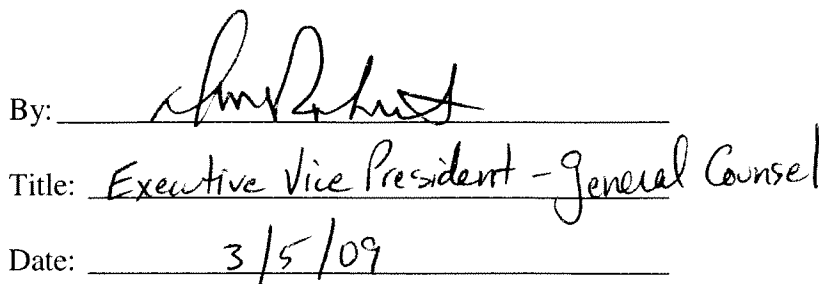 By:
Title: Executive Vice President - General Counsel
Date: 3/5/09